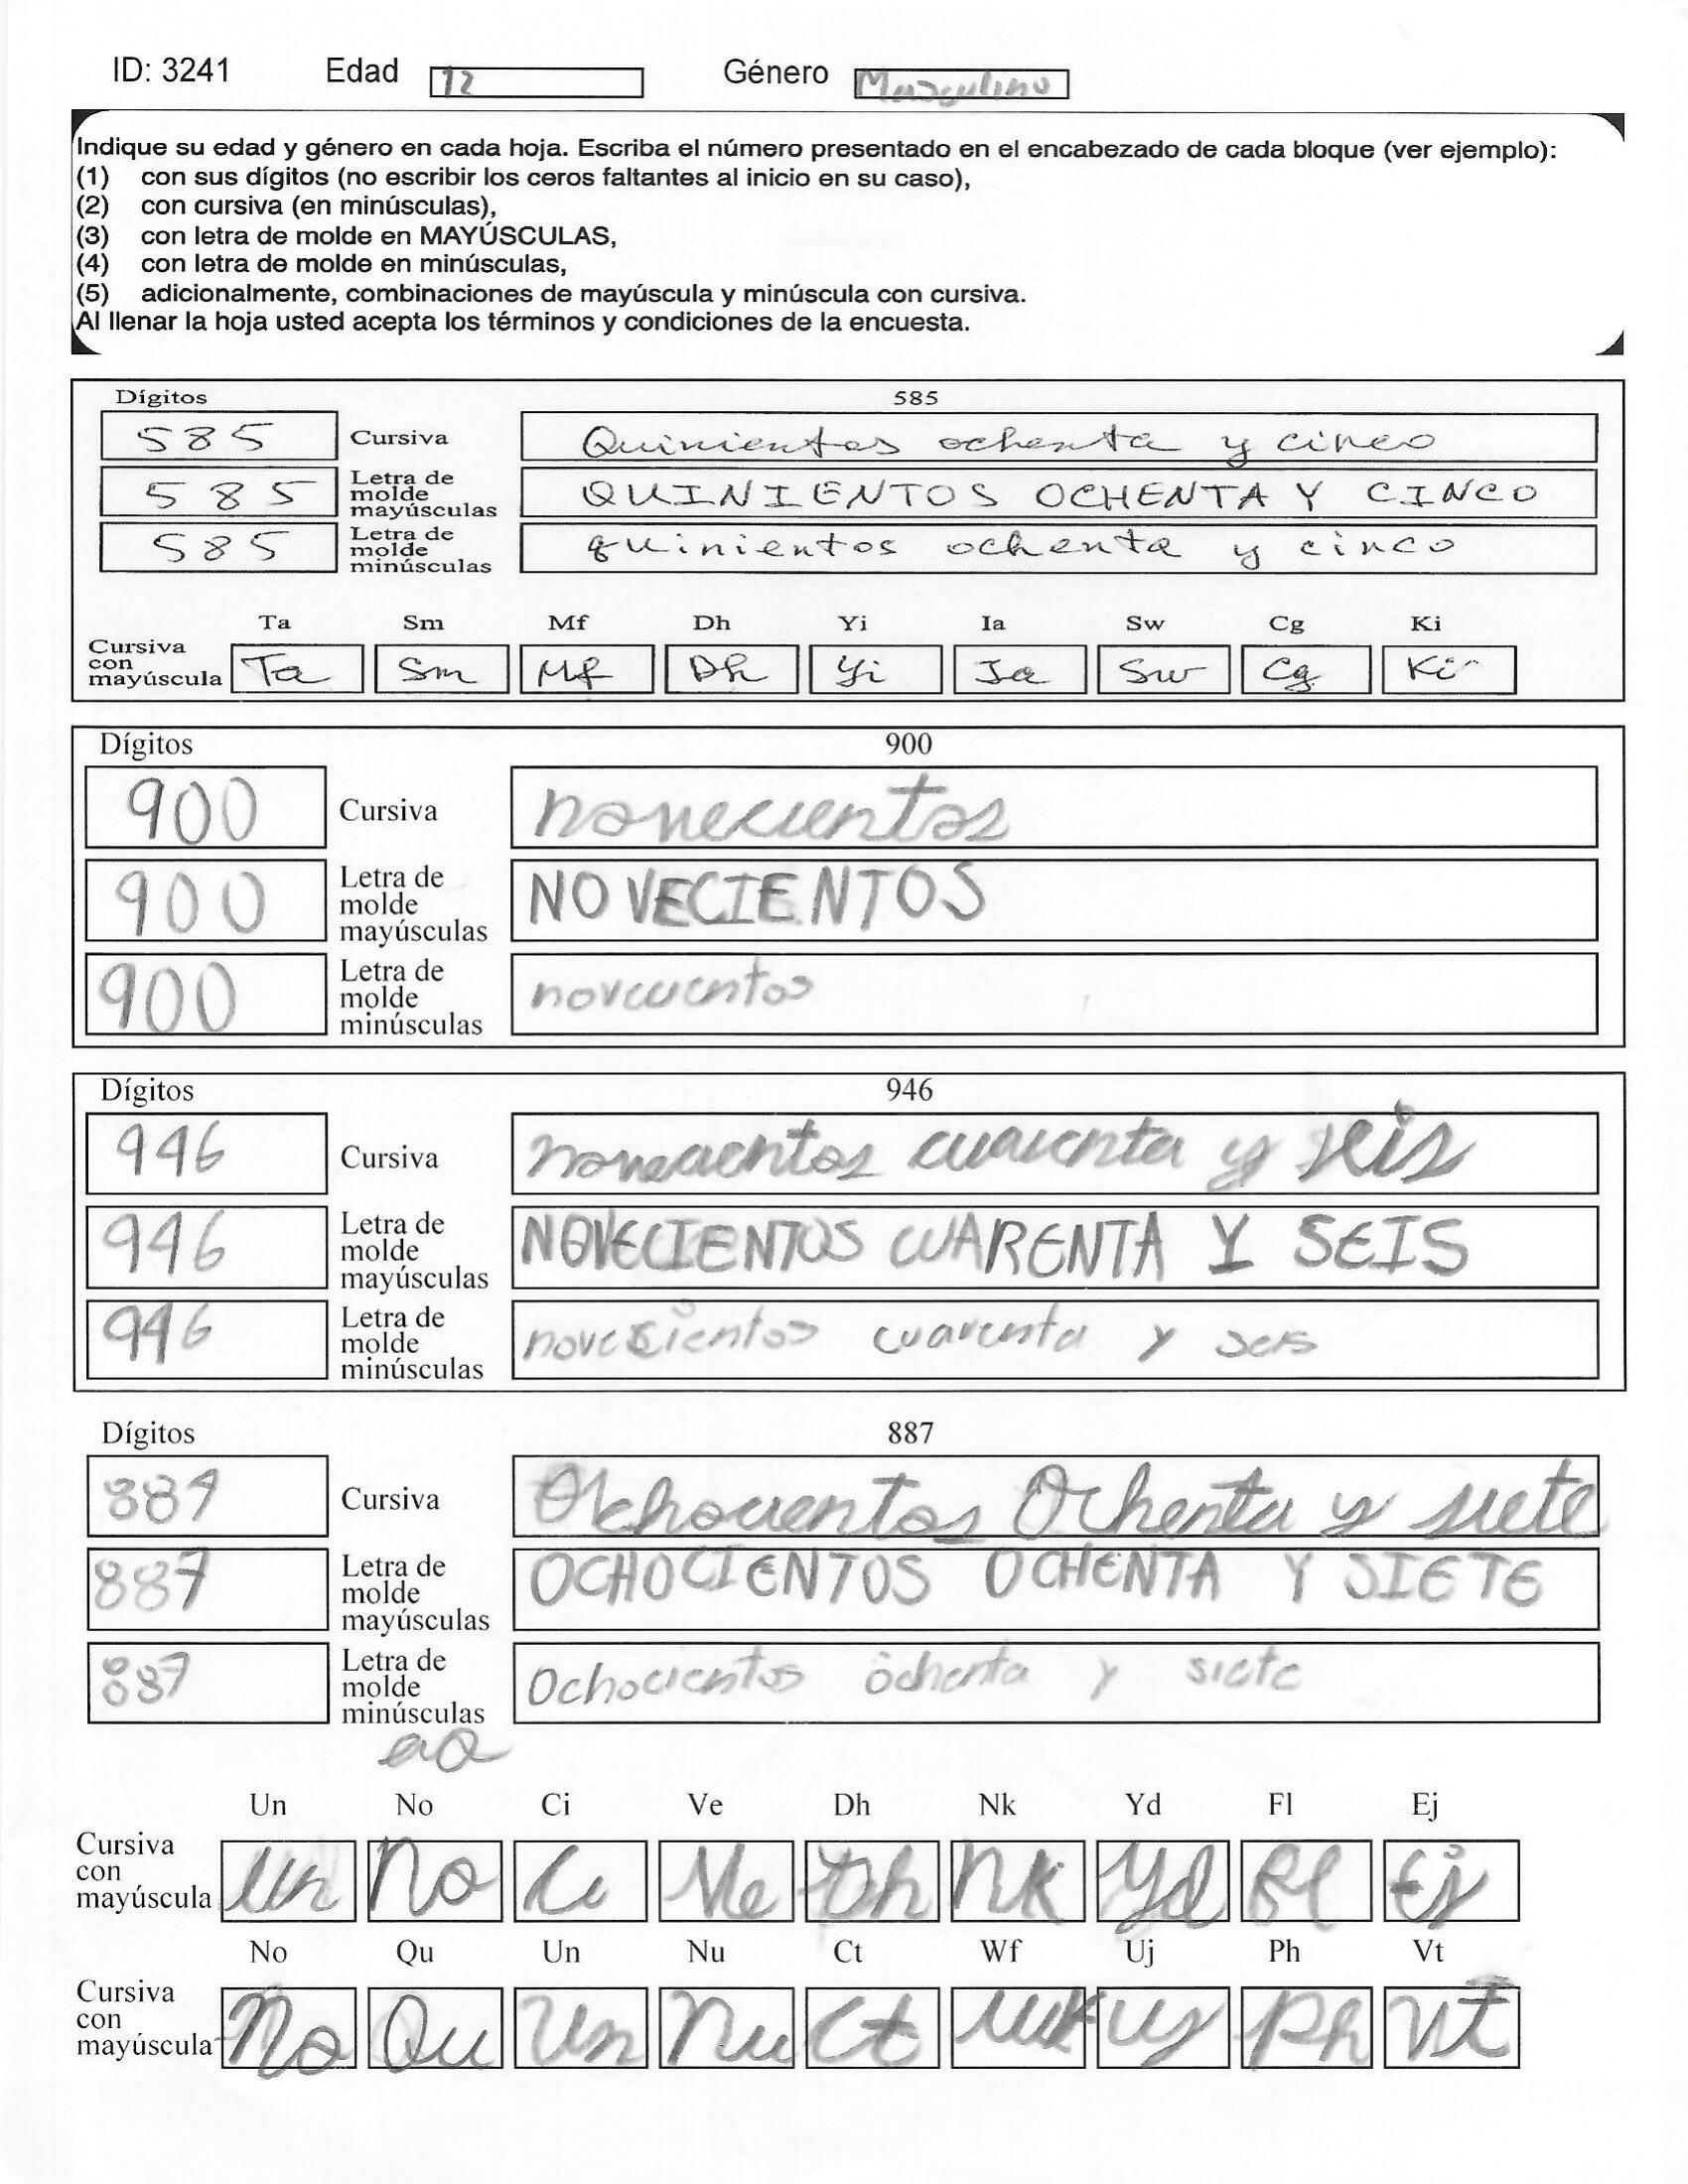 ID: 3241 Edad 12 Género Masculino
Indique su edad y género en cada hoja. Escriba el número presentado en el encabezado de cada bloque (ver ejemplo):
(1) con sus dígitos (no escribir los ceros faltantes al inicio en su caso),
(2) con cursiva (en minúsculas),
(3) con letra de molde en MAYÚSCULAS,
(4) con letra de molde en minúsculas,
(5) adicionalmente, combinaciones de mayúscula y minúscula con cursiva.
Al llenar la hoja usted acepta los términos y condiciones de la encuesta.
Dígitos 585
585 Cursiva Quinientos ochenta y cinco
585 Letra de molde mayúsculas QUINIENTOS OCHENTA Y CINCO
585 Letra de molde minúsculas quinientos ochenta y cinco
Ta Sm Mf Dh Yi Ia Sw Cg Ki
Cursiva con mayúscula Ta Sm Mf Dh Yi Ia Sw Cg Ki
Dígitos 900
900 Cursiva novecientos
900 Letra de molde mayúsculas NOVECIENTOS
900 Letra de molde minúsculas novecientos
Dígitos 946
946 Cursiva novecientos cuarenta y seis
946 Letra de molde mayúsculas NOVECIENTOS CUARENTA Y SEIS
946 Letra de molde minúsculas novecientos cuarenta y seis
Dígitos 887
887 Cursiva Ochocientos Ochenta y siete
887 Letra de molde mayúsculas OCHOCIENTOS OCHENTA Y SIETE
887 Letra de molde minúsculas Ochocientos ochenta y siete
Un No Ci Ve Dh Nk Yd Fl Ej
Cursiva con mayúscula Un No Ci Ve Dh Nk Yd Fl Ej
No Qu Un Nu Ct Wf Uj Ph Vt
Cursiva con mayúscula No Qu Un Nu Ct Wf Uj Ph Vt